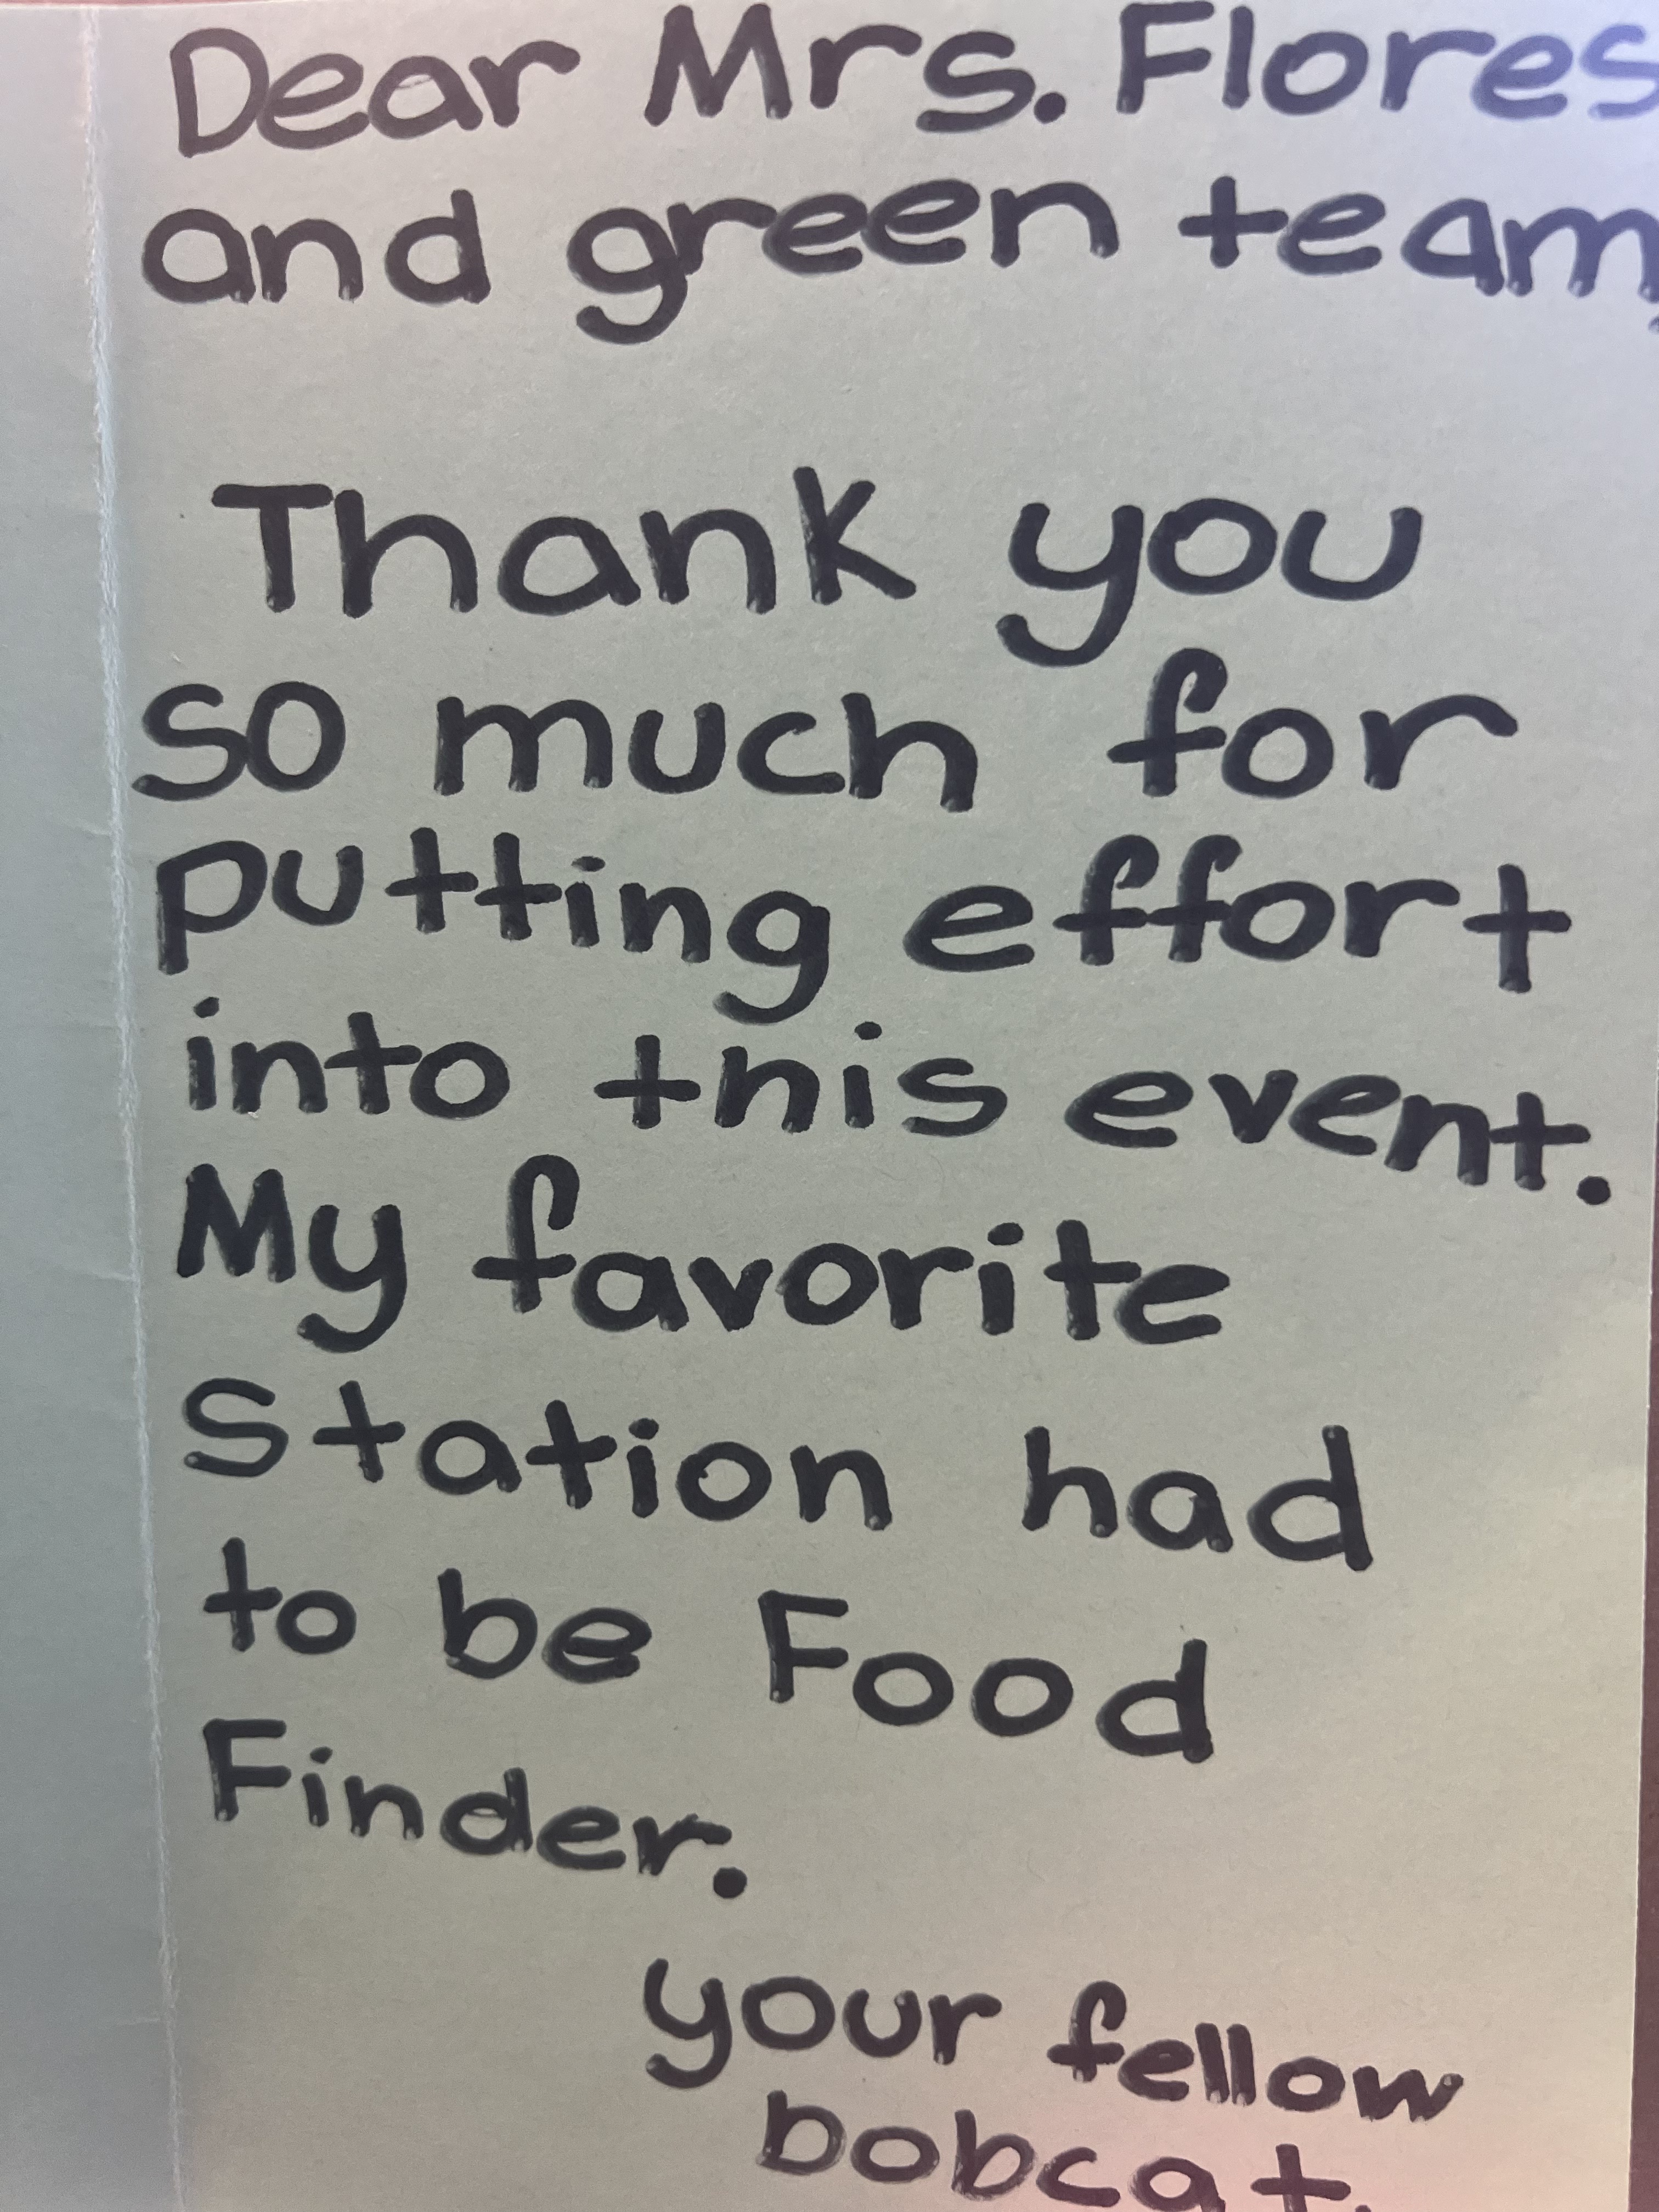 Dear Mrs. Flores
and green team,
Thank you
so much for
putting effort
into this event.
My favorite
Station had
to be Food
Finder.
your fellow
bobcat,